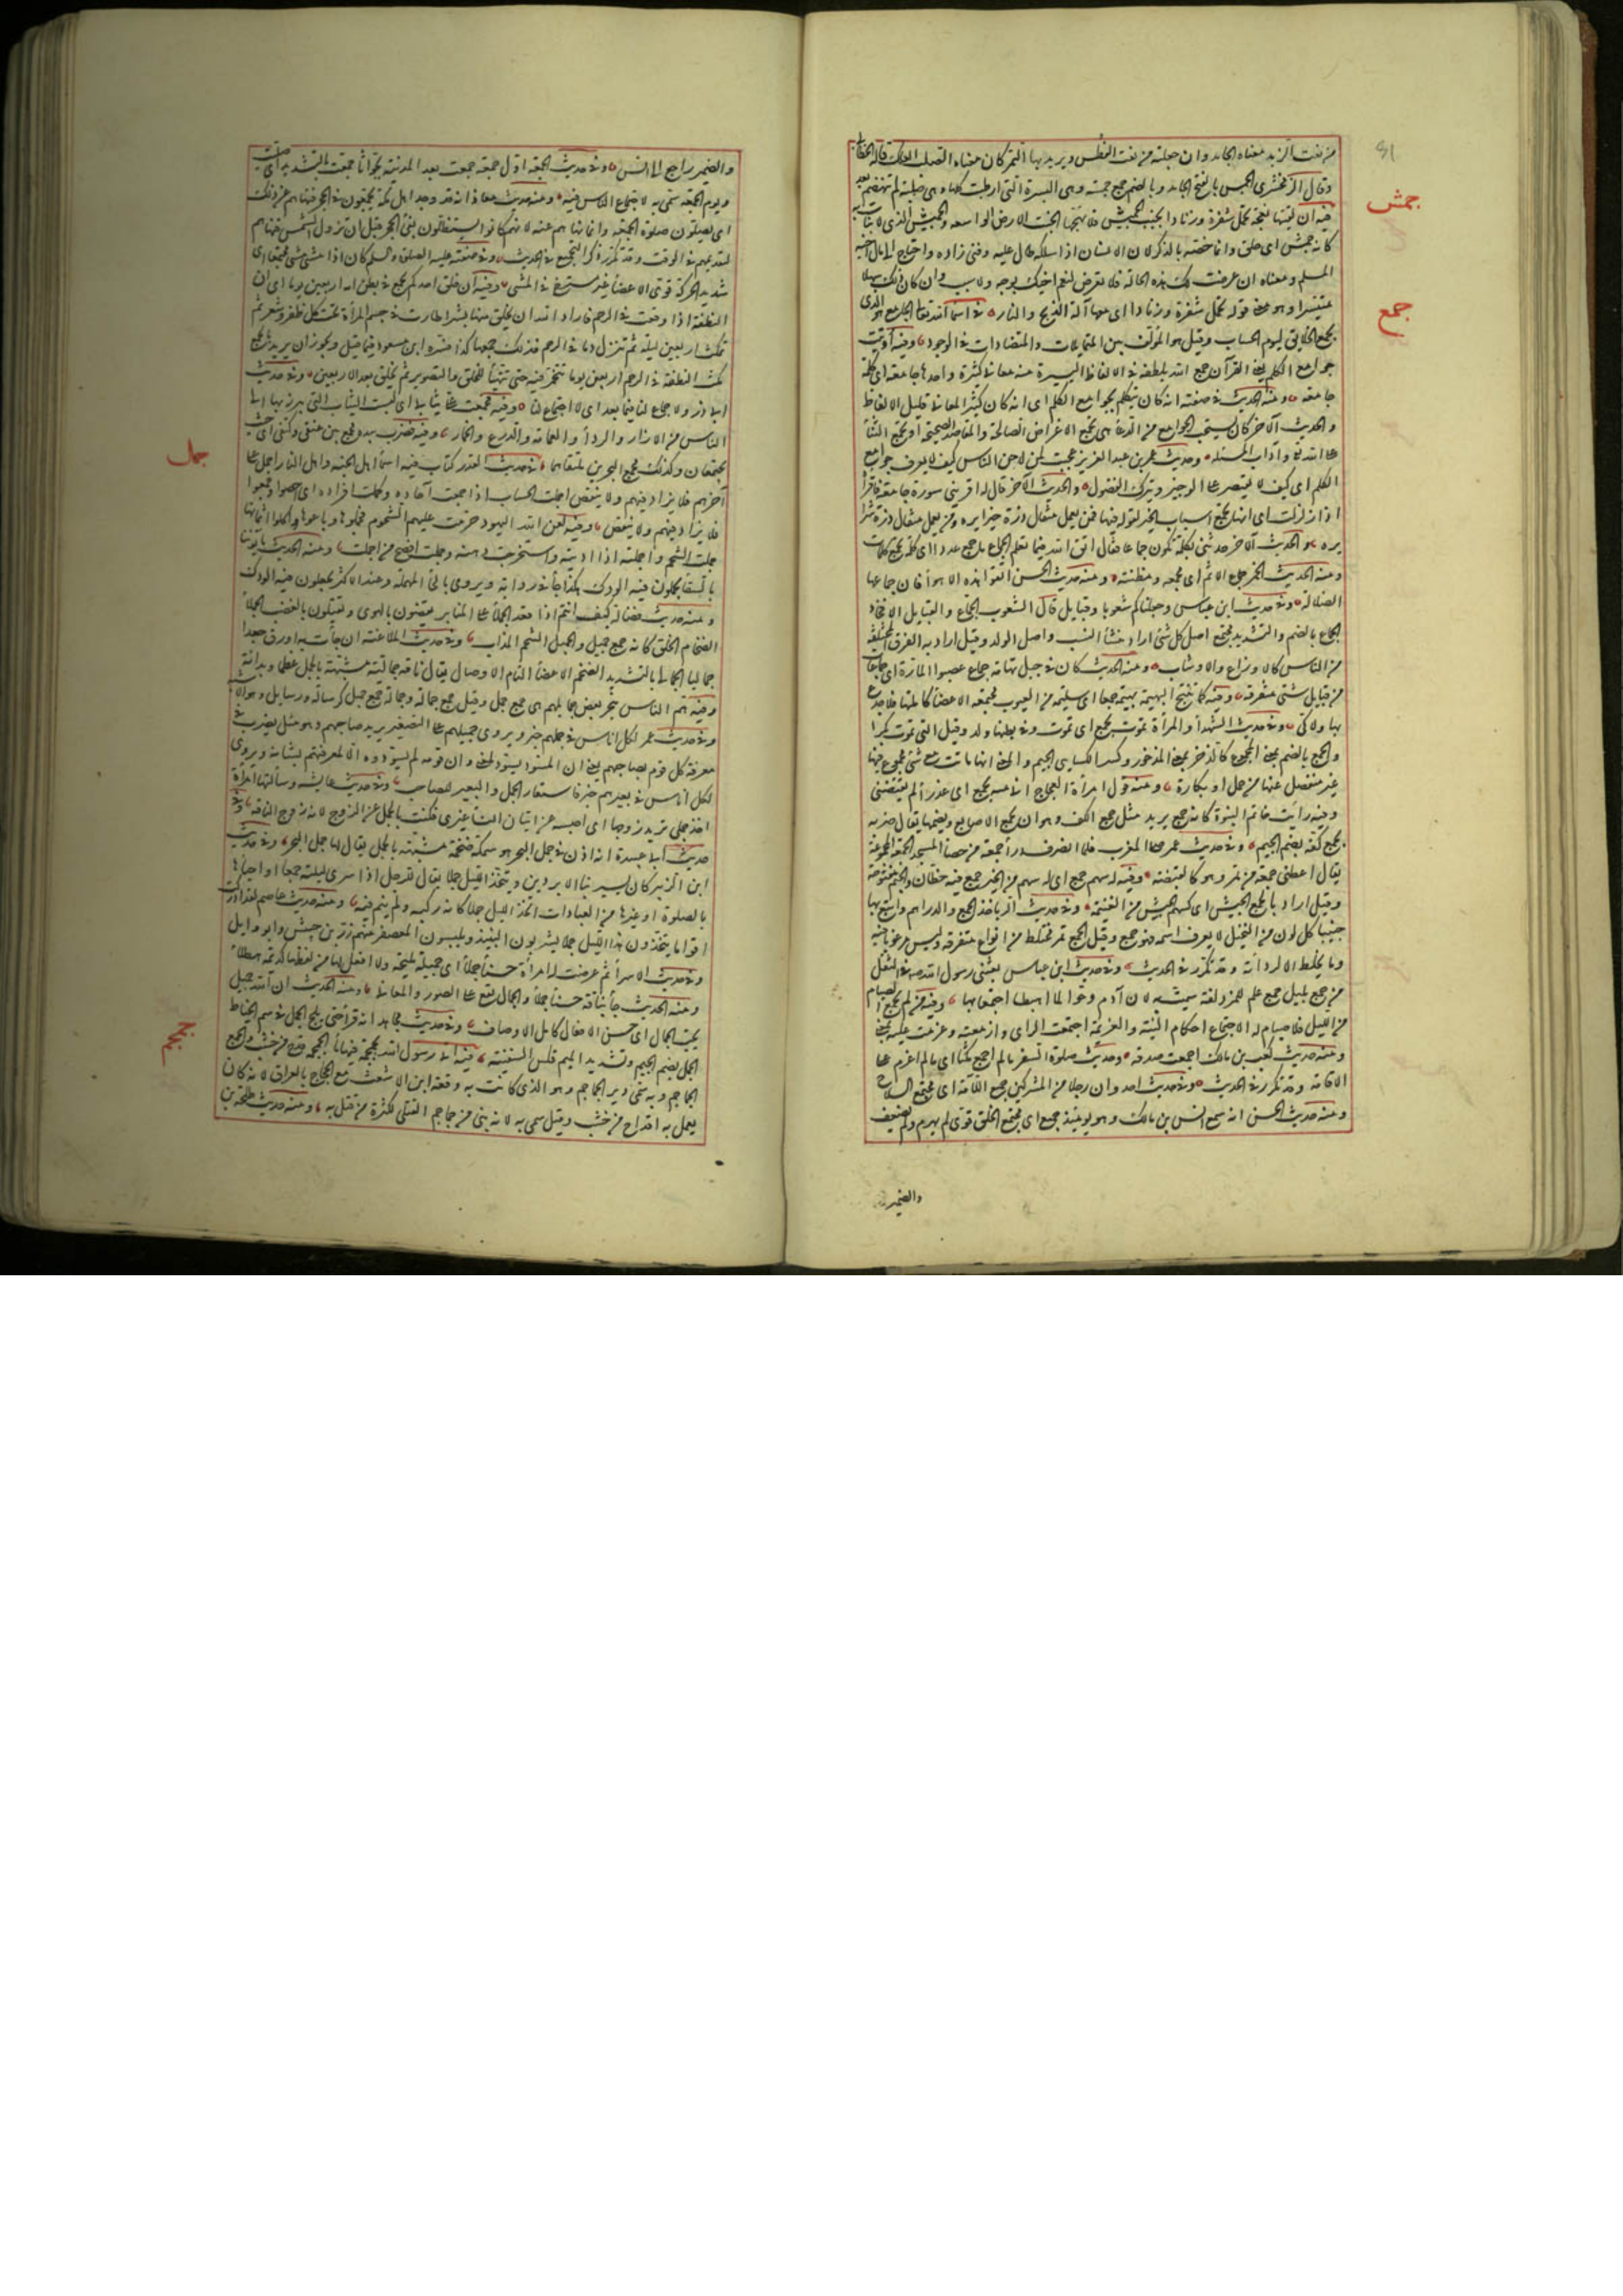 81
من نعت الزبد معناه الجامد وان جعلته من نعت الفطس ويريد بها التمر كان معناه الصلب العلك قاله الخطابي
وقال الزمخشري الجمس بالفتح الجامد وبالضم جمع جمسة وهي البسرة التي ارطبت كلها وهي صلبة لم تنهضم بعد
جمش
فيه ان لقيتها نعجة تحمل شفرة وزنادا بخبت الجميش فلا تهجها الخبت الارض الواسعة والجميش الذي لا نبات به
كانه جمش اي حلق وانما خصه بالذكر لان الانسان اذا سلكه طال عليه وفني زاده واحتاج الى مال اخيه
المسلم ومعناه ان عرضت لك هذه الحالة فلا تعرض لنعم اخيك بوجه ولا سبب وان كان ذلك سهلا
جمع
متيسرا وهو معنى قوله تحمل شفرة وزنادا اي معها آلة الذبح والنار في اسما الله تعالى الجامع هو الذي
يجمع الخلايق ليوم الحساب وقيل هو المؤلف بين المتماثلات والمتضادات في الوجود وفيه اوتيت
جوامع الكلم يعني القرآن جمع الله بلطفه في الالفاظ اليسيرة منه معاني كثيرة واحدها جامعة اي كلمة
جامعة ومنه الحديث في صفته انه كان يتكلم بجوامع الكلم اي انه كان كثير المعاني قليل الالفاظ
والحديث الآخر كان يستحب الجوامع من الدعا هي تجمع الاغراض الصالحة والمقاصد الصحيحة او تجمع الثنا
على الله تعالى وآداب المسئلة وحديث عمر بن عبد العزيز عجبت لمن لاحن الناس كيف لا يعرف جوامع
الكلم اي كيف لا يقتصر على الوجيز ويترك الفضول والحديث الآخر قال له اقرئني سورة جامعة فاقرأه
اذا زلزلت اي انها تجمع اسباب الخير لقوله فيها فمن يعمل مثقال ذرة خيرا يره ومن يعمل مثقال ذرة شرا
يره والحديث الآخر حدثني بكلمة تكون جماعا فقال اتق الله فيما تعلم الجماع ما جمع عددا اي كلمة تجمع كلمات
ومنه الحديث الخمر جماع الاثم اي مجمعه ومظنته ومنه حديث الحسن اتقوا هذه الاهوا فان جماعها
الضلالة وفي حديث ابن عباس وجعلناكم شعوبا وقبايل قال الشعوب الجماع والقبايل الافخاذ
الجماع بالضم والتشديد مجتمع اصل كل شئ اراد منشأ النسب واصل المولد وقيل اراد به الفرق المختلفة
من الناس كالاوزاع والاوشاب ومنه الحديث كان في جبل تهامة جماع غصبوا المارة اي جماعات
من قبايل شتى متفرقة وفيه كما تنتج البهيمة بهيمة جمعا اي سليمة من العيوب مجتمعة الاعضا كاملتها فلا جدع
بها ولا كي وفي حديث الشهدا والمرأة تموت بجمع اي تموت وفي بطنها ولد وقيل التي تموت بكرا
والجمع بالضم بمعنى المجموع كالذخر بمعنى المذخور وكسر الكسائي الجيم والمعنى انها ماتت مع شئ مجموع فيها
غير منفصل عنها من حمل او بكارة ومنه قول امرأة العجاج اني منه بجمع اي عذرا لم يفتضني
وفيه رأيت خاتم النبوة كانه جمع يريد مثل جمع الكف وهو ان تجمع الاصابع وتضمها يقال ضربه
بجمع كفه بضم الجيم وفي حديث عمر صلى المغرب فلما انصرف درأ جمعة من حصا المسجد الجمعة المجموعة
يقال اعطني جمعة من تمر وهو كالقبضة وفيه له سهم جمع اي له سهم من الخير جمع فيه حظان والجيم مفتوحة
وقيل اراد بالجمع الجيش اي كسهم الجيش من الغنيمة وفي حديث الربا خذ الجمع والدراهم وابتع بها
جنيبا كل لون من النخيل لا يعرف اسمه فهو جمع وقيل الجمع تمر مختلط من انواع متفرقة وليس مرغوبا فيه
وما يخلط الا لرداته وقد تكرر في الحديث وفي حديث ابن عباس بعثني رسول الله صلعم في الثقل
من جمع بليل جمع علم للمزدلفة سميت به لان آدم وحوا لما اهبطا اجتمعا بها وفيه من لم يجمع الصيام
من الليل فلا صيام له الاجماع احكام النية والعزيمة اجمعت الراي وازمعته وعزمت عليه بمعنى
ومنه حديث كعب بن مالك اجمعت صدقه وحديث صلوة السفر ما لم اجمع مكثا اي ما لم اعزم على
الاقامة وقد تكرر في الحديث وفي حديث احد وان رجلا من المشركين جميع اللأمة اي مجتمع السلاح
ومنه حديث الحسن انه سمع انس بن مالك وهو يومئذ جميع اي مجتمع الخلق قوي لم يهرم ولم يضعف
والضمير
والضمير راجع الى انس وفي حديث الجمعة اول جمعة جمعت بعد المدينة بجواثا جمعت بالتشديد اي صليت
ويوم الجمعة سمي به لاجتماع الناس فيه ومنه حديث معاذ انه وجد اهل مكة يجمعون في الحجر فنهاهم عن ذلك
اي يصلون صلوة الجمعة وانما نهاهم عنه لانهم كانوا يستظلون بفئ الحجر قبل ان تزول الشمس فنهاهم
لتقديمهم في الوقت وقد تكرر ذكر التجميع في الحديث وفي صفته عليه الصلوة والسلم كان اذا مشى مشى مجتمعا اي
شديد الحركة قوي الاعضا غير مسترخ في المشي وفيه ان خلق احدكم يجمع في بطن امه اربعين يوما اي ان
النطفة اذا وقعت في الرحم فاراد الله ان يخلق منها بشرا طارت في جسم المرأة تحت كل ظفر وشعر ثم
تمكث اربعين ليلة ثم تنزل دما في الرحم فذلك جمعها كذا فسره ابن مسعود فيما قيل ويجوز ان يريد بالجمع
مكث النطفة في الرحم اربعين يوما تتخمر فيه حتى تتهيأ للخلق والتصوير ثم تخلق بعد الاربعين وفي حديث
ابي ذر ولا جماع لنا فيما بعد اي لا اجتماع لنا وفيه فجمعت علي ثيابي اي لبست الثياب التي يبرز بها الى
الناس من الازار والردا والعمامة والدرع والخمار وفيه فضرب بيده مجمع بين عنقي وكتفي اي حيث
جمل
يجتمعان وكذلك مجمع البحرين ملتقاهما في حديث القدر كتاب فيه اسما اهل الجنة واهل النار اجمل على
آخرهم فلا يزاد فيهم ولا ينقص اجملت الحساب اذا جمعت آحاده وكملت افراده اي احصوا وجمعوا
فلا يزاد فيهم ولا ينقص وفيه لعن الله اليهود حرمت عليهم الشحوم فجملوها وباعوها واكلوا اثمانها
جملت الشحم واجملته اذا اذبته واستخرجت دهنه وجملت افصح من اجملت ومنه الحديث يأتوننا
بالسقا يجملون فيه الودك هكذا جا في رواية ويروى بالحا المهملة وعند الاكثر يجعلون فيه الودك
ومنه حديث فضالة كيف انتم اذا قعد الجملا على المنابر يقضون بالهوى ويقتلون بالغضب الجملا
الضخام الخلق كانه جمع جميل والجميل الشحم المذاب وفي حديث الملاعنة ان جات به اورق جعدا
جماليا الجمالي بالتشديد الضخم الاعضا التام الاوصال يقال ناقة جمالية مشبهة بالجمل عظما وبدانة
وفيه هم الناس بنحر بعض جمايلهم هي جمع جمل وقيل جمع جمالة وجمالة جمع جمل كرسالة ورسايل وهو الاشبه
وفي حديث عمر لكل اناس في جملهم خبر ويروى جميلهم على التصغير يريد صاحبهم وهو مثل يضرب في
معرفة كل قوم بصاحبهم يعني ان المسود يسود لمعنى وان قومه لم يسودوه الا لمعرفتهم بشانه ويروى
لكل اناس في بعيرهم خبر فاستعار الجمل والبعير للصاحب وفي حديث عايشة وسألتها امرأة
اؤخذ جملي تريد زوجها اي احبسه عن اتيان النسا غيري فكنت بالجمل عن الزوج لانه زوج الناقة وفي
حديث ابي عبيدة انه اذن في جمل البحر هو سمكة ضخمة مشبهة بالجمل يقال لها جمل البحر وفي حديث
ابن الزبير كان يسير بنا الابردين ويتخذ الليل جملا يقال للرجل اذا سرى ليلته جمعا او احياها
بالصلوة او غيرها من العبادات اتخذ الليل جملا كانه ركبه ولم ينم فيه ومنه حديث عاصم لقد ادركت
اقواما يتخذون هذا الليل جملا يشربون النبيذ ويلبسون المعصفر منهم زر بن حبيش وابو وايل
وفي حديث الاسرا ثم عرضت له امرأة حسنا جملا اي جميلة مليحة ولا افعل لها من لفظها كديمة هطلا
ومنه الحديث جا بناقة حسنا جملا والجمال يقع على الصور والمعاني ومنه الحديث ان الله جميل
يحب الجمال اي حسن الافعال كامل الاوصاف وفي حديث مجاهد انه قرأ حتى يلج الجمل في سم الخياط
جمجم
الجمل بضم الجيم وتشديد الميم قلس السفينة فيه اتي رسول الله بجمجمة فيها ما الجمجمة قدح من خشب والجمع
الجماجم وبه سمي دير الجماجم وهو الذي كانت به وقعة ابن الاشعث مع الحجاج بالعراق لانه كان
يعمل به اقداح من خشب وقيل سمي به لانه بني من جماجم القتلى لكثرة من قتل به ومنه حديث طلحة بن